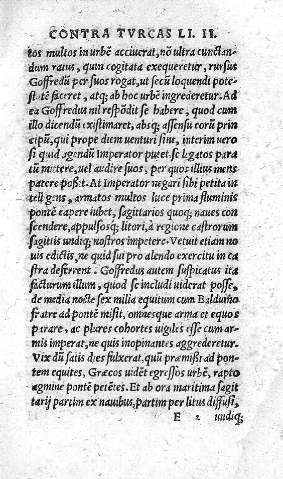 CONTRA TVRCAS LI. II.
tos multos in urbẽ acciuerat, nõ ultra cunctan-
dum ratus, quin cogitata exequeretur, rursus
Goffredũ per suos rogat, ut secũ loquendi pote-
stãtẽ faceret, atq; ab hoc urbẽ ingrederetur. Ad
ea Goffredus nil respõdit se habere, quod cum
illo dicendũ existimaret, absq; assensu corũ prin
cipũ, qui prope diem uenturi sint, interim uero
si quid agendũ Imperator putet se legatos para
tũ mittere, uel audire suos, per quos illius mens
patere possit. At Imperator negari sibi petita in
telligens, armatos multos luce prima fluminis
pontẽ capere iubet, sagittarios quoq; naues con
scendere, appulsosq; litori, à regione castrorum
sagittis undiq; nostros impetere. Vetuit etiam no
uis edictis, ne quid sui pro alendo exercitu in ca
stra deferrent. Goffredus autem suspicatus ita
facturum illum, quod se includi uiderat posse,
de media nocte sex milia equitum cum Balduino
fratre ad pontẽ misit, omnesque arma et equos
parare, ac plures cohortes uigiles esse cum ar-
mis imperat, ne quis inopinantes aggrederetur.
Vix dũ satis dies fulxerat, quũ præmissi ad pon-
tem equites, Græcos uidẽt egressos urbẽ, rapto
agmine pontẽ petẽtes. Et ab ora maritima sagit
tarij partim ex nauibus, partim per litus diffusi,
E 2 undiq;